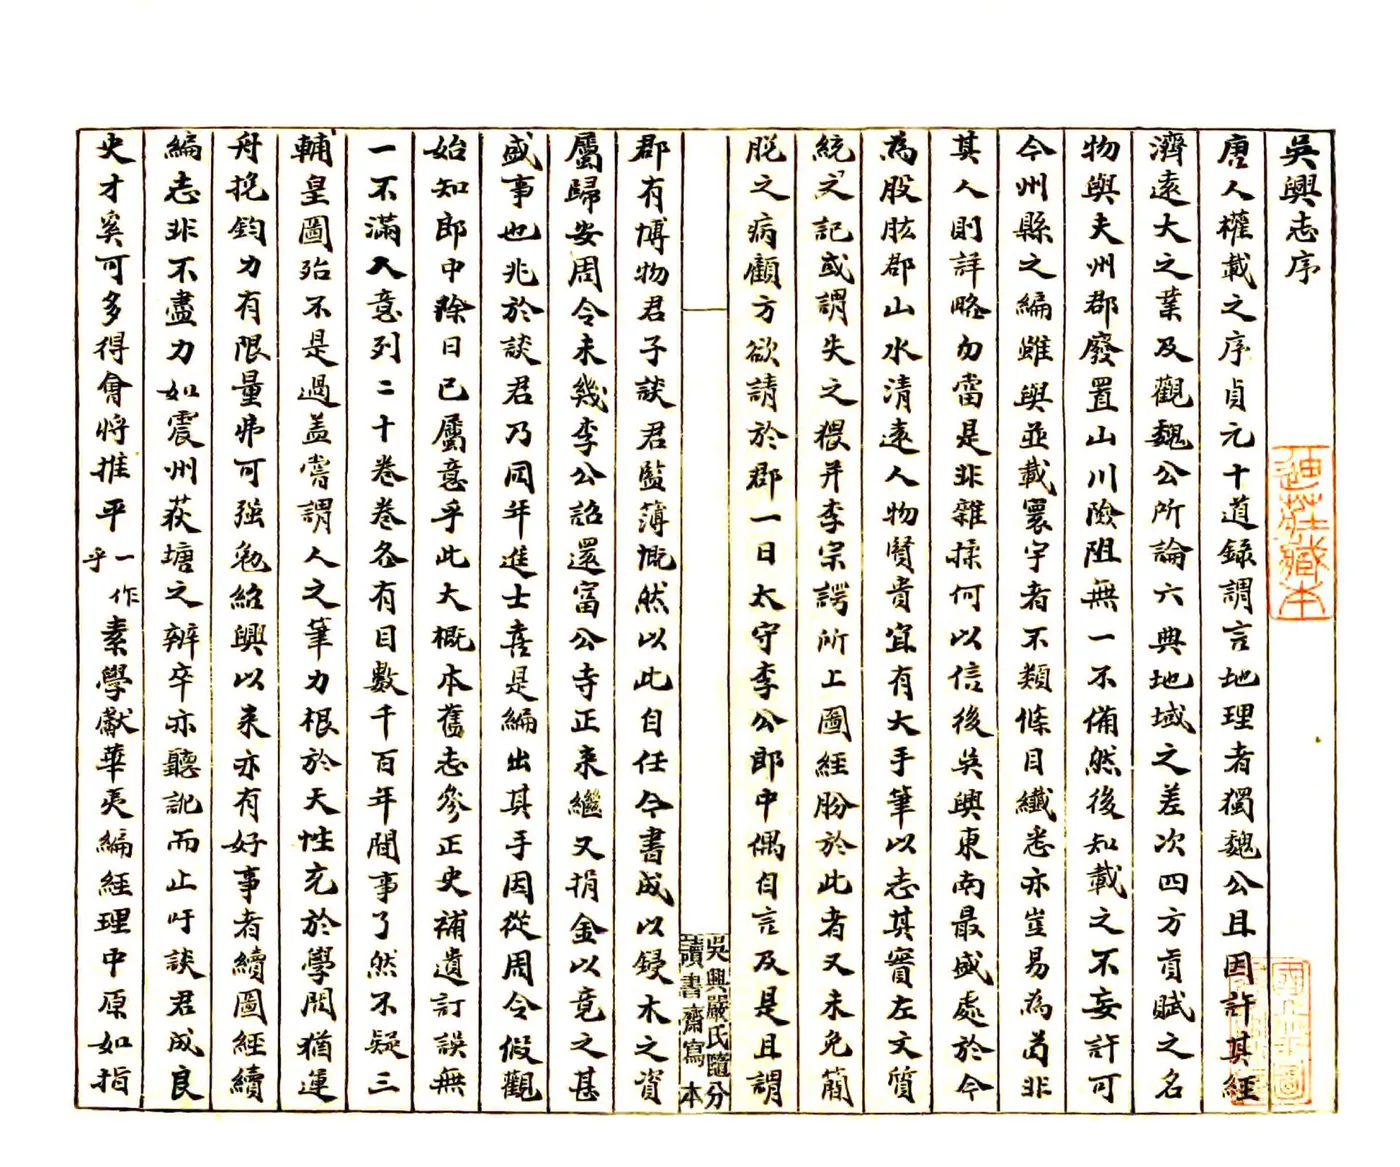 吳興志序
唐人權載之序貞元十道錄謂言地理者獨魏公且因許其經
濟遠大之業及觀魏公所論六典地域之差次四方貢賦之名
物與夫州郡廢置山川險阻無一不備然後知載之不妄許可
今州縣之編雖與並載寰宇者不類條目纖悉亦豈易為茍非
其人則詳略勿當是非雜揉何以信後吳興東南最盛處於今
為股肱郡山水清遠人物賢貴宜有大手筆以志其實左文質
統記或謂失之猥并李宗諤所上圖經昉於此者又未免簡
脫之病顧方欲請於郡一日太守李公郎中偶自言及是且謂
吳興嚴氏隨分
讀書齋寫本
郡有博物君子談君監簿慨然以此自任今書成以鋟木之資
屬歸安周令未幾李公詔還富公寺正來繼又捐金以竟之甚
盛事也兆於談君乃同年進士喜是編出其手因從周令假觀
始知郎中除日已屬意乎此大概本舊志參正史補遺訂誤無
一不滿人意列二十卷卷各有目數千百年間事了然不疑三
輔皇圖殆不是過蓋嘗謂人之筆力根於天性充於學問猶運
舟挽鈞力有限量弗可強勉紹興以來亦有好事者續圖經續
編志非不盡力如震州荻塘之辨卒亦聽訛而止吁談君成良
史才奚可多得會將推平一作乎素學獻華夷編經理中原如指
迪莊藏本